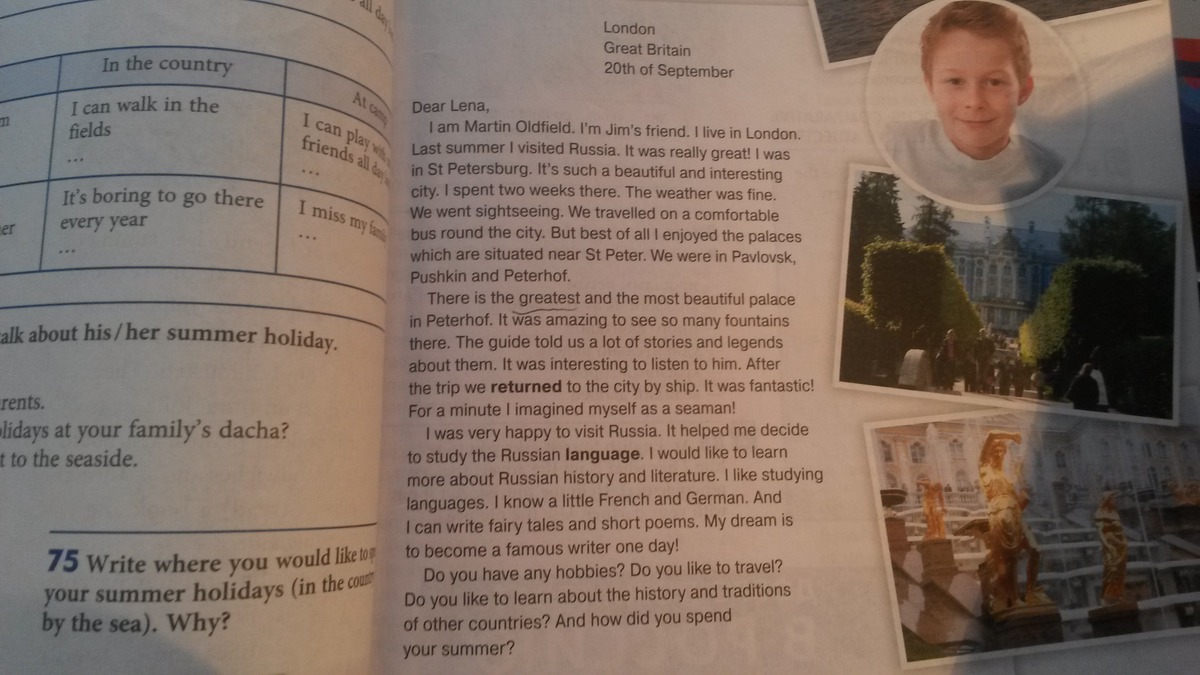 all day
In the country
At
I can walk in the
fields
...
I can play with
friends all day
...
It's boring to go there
every year
...
I miss my
...
talk about his/her summer holiday.
holidays at your family's dacha?
to the seaside.
75 Write where you would like to
your summer holidays (in the
by the sea). Why?
London
Great Britain
20th of September
Dear Lena,
I am Martin Oldfield. I'm Jim's friend. I live in London.
Last summer I visited Russia. It was really great! I was
in St Petersburg. It's such a beautiful and interesting
city. I spent two weeks there. The weather was fine.
We went sightseeing. We travelled on a comfortable
bus round the city. But best of all I enjoyed the palaces
which are situated near St Peter. We were in Pavlovsk,
Pushkin and Peterhof.
There is the greatest and the most beautiful palace
in Peterhof. It was amazing to see so many fountains
there. The guide told us a lot of stories and legends
about them. It was interesting to listen to him. After
the trip we returned to the city by ship. It was fantastic!
For a minute I imagined myself as a seaman!
I was very happy to visit Russia. It helped me decide
to study the Russian language. I would like to learn
more about Russian history and literature. I like studying
languages. I know a little French and German. And
I can write fairy tales and short poems. My dream is
to become a famous writer one day!
Do you have any hobbies? Do you like to travel?
Do you like to learn about the history and traditions
of other countries? And how did you spend
your summer?